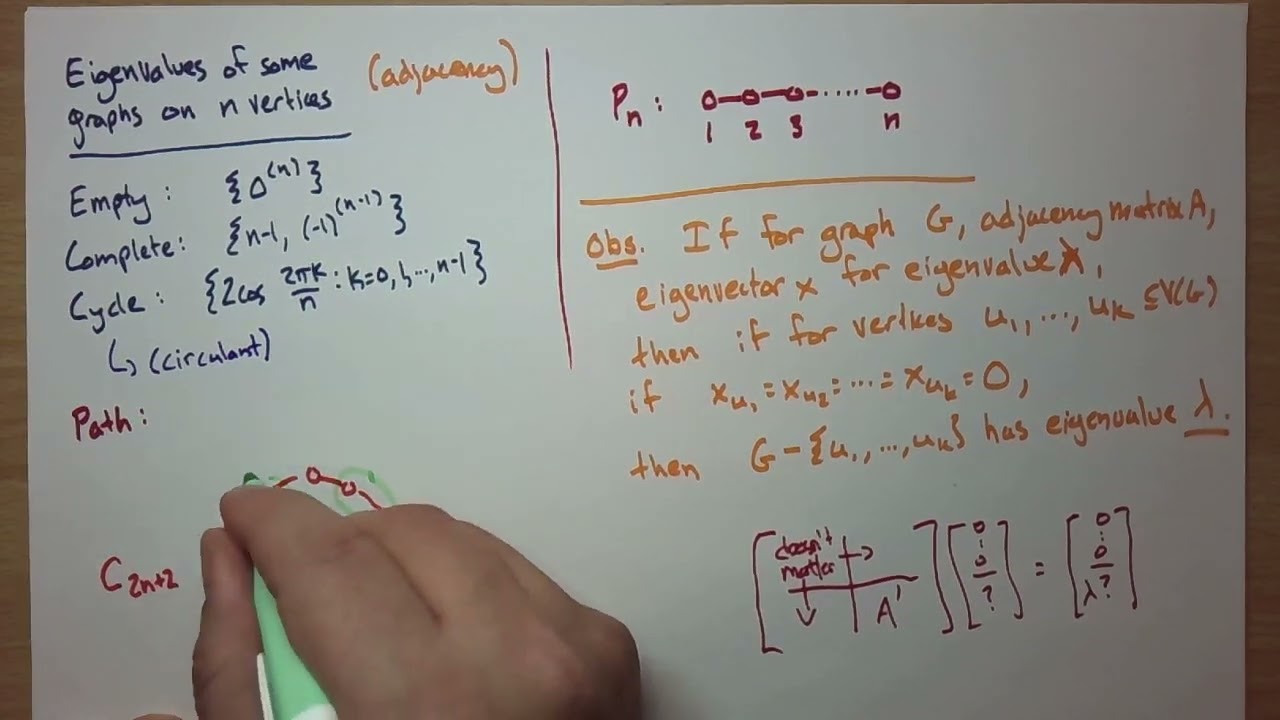 Eigenvalues of some
graphs on n vertices
(adjacency)
Empty: {0^(n)}
Complete: {n-1, (-1)^(n-1)}
Cycle: {2cos 2πk/n : k=0,1,...,n-1}
↳ (circulant)
Path:
C_2n+2
P_n:
1 2 3 n
Obs. If for graph G, adjacency matrix A,
eigenvector x for eigenvalue λ,
then if for vertices u_1, ..., u_k ⊆ V(G)
if x_u_1 = x_u_2 = ... = x_u_k = 0,
then G - {u_1, ..., u_k} has eigenvalue λ.
[doesn't matter → ↓ A'] [0 ⋮ 0 ?] = [0 ⋮ 0 λ?]